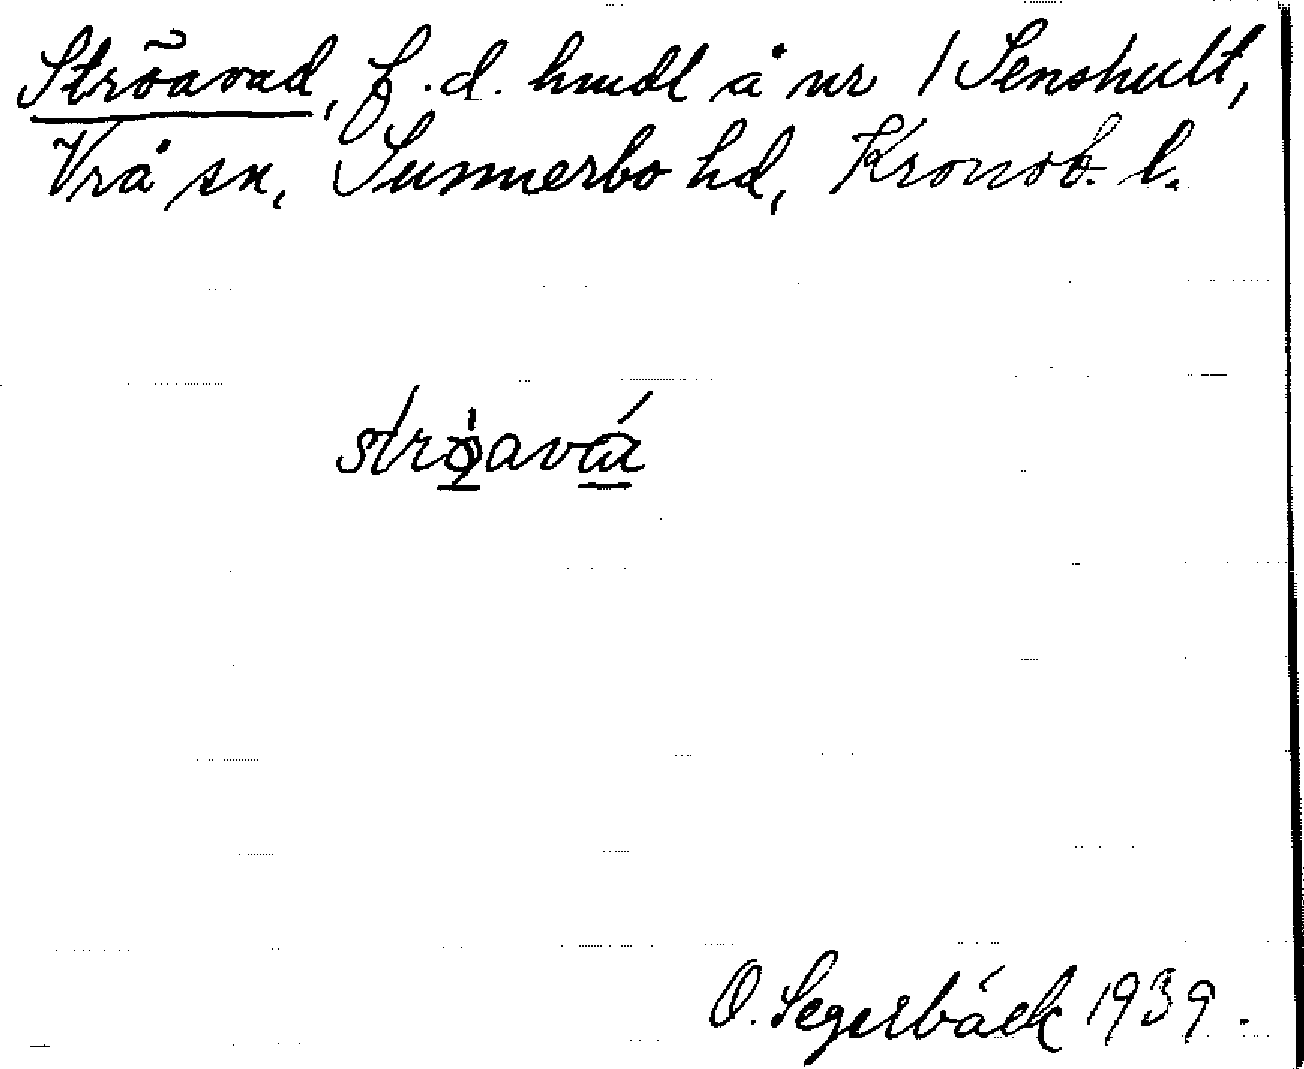 Ströavad, f.d. hmdl å nr 1 Senshult,
Vrå sn, Sunnerbo hd, Kronob. l.
strøava
O. Segerbäck 1939.